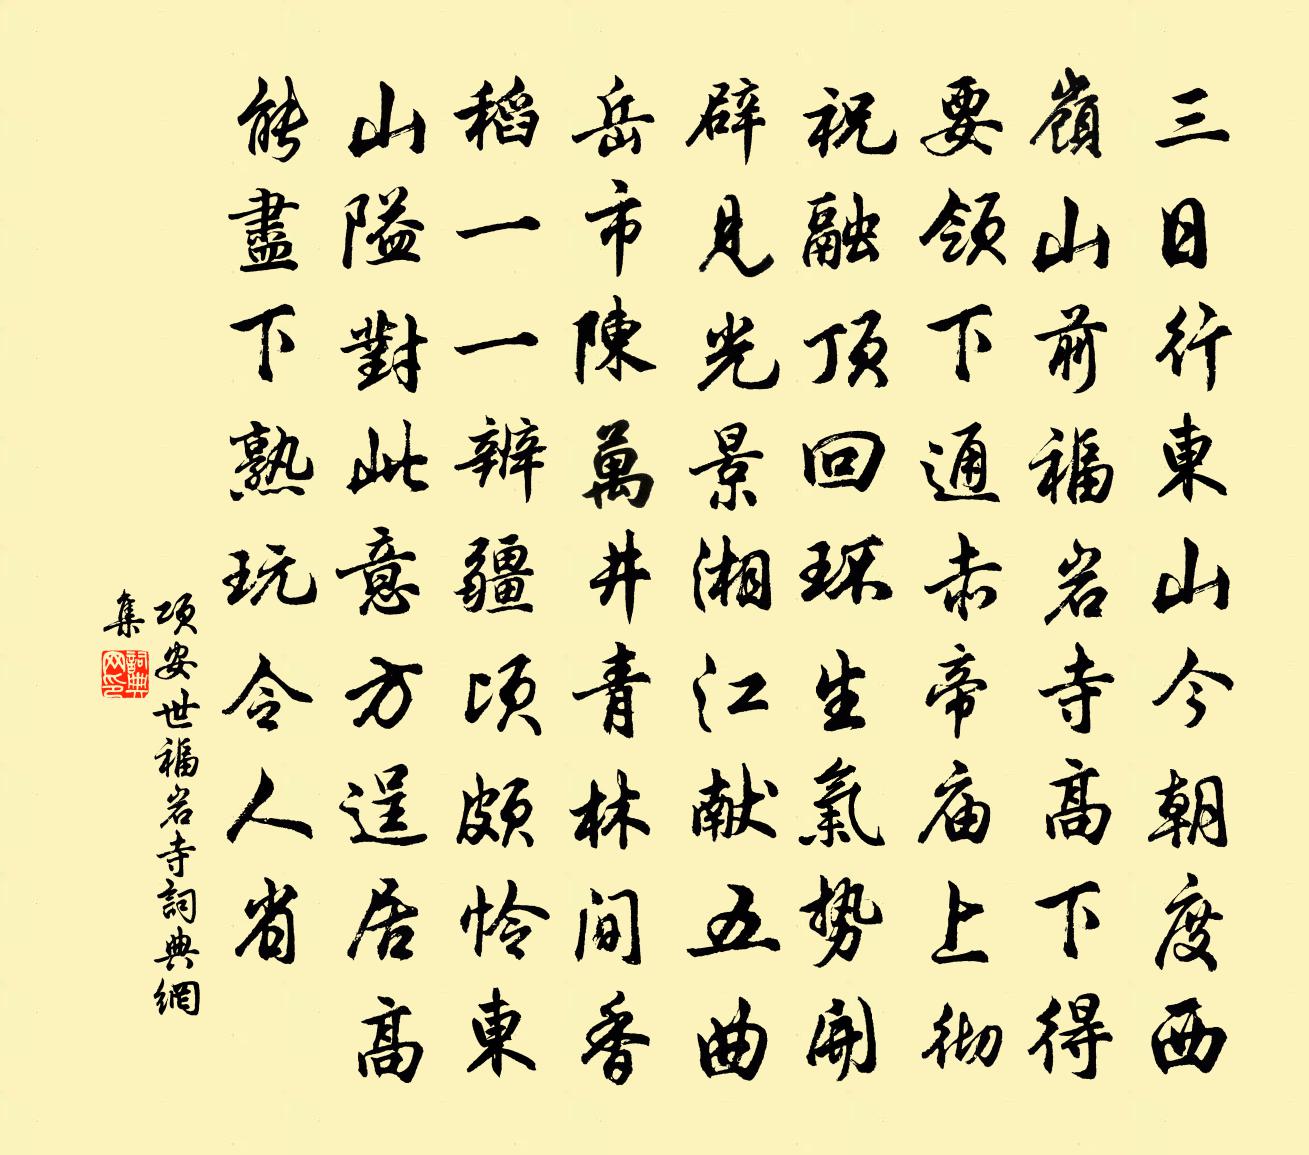 三日行東山今朝度西
嶺山前福岩寺高下得
要領下通赤帝庙上彻
祝融顶回环生氣势開
辟見光景湘江献五曲
岳市陳萬井青林間香
稻一一辨疆頃颇怜東
山隘對此意方逞居高
能盡下熟玩令人省
项安世福岩寺詞典網
集
詞典
网